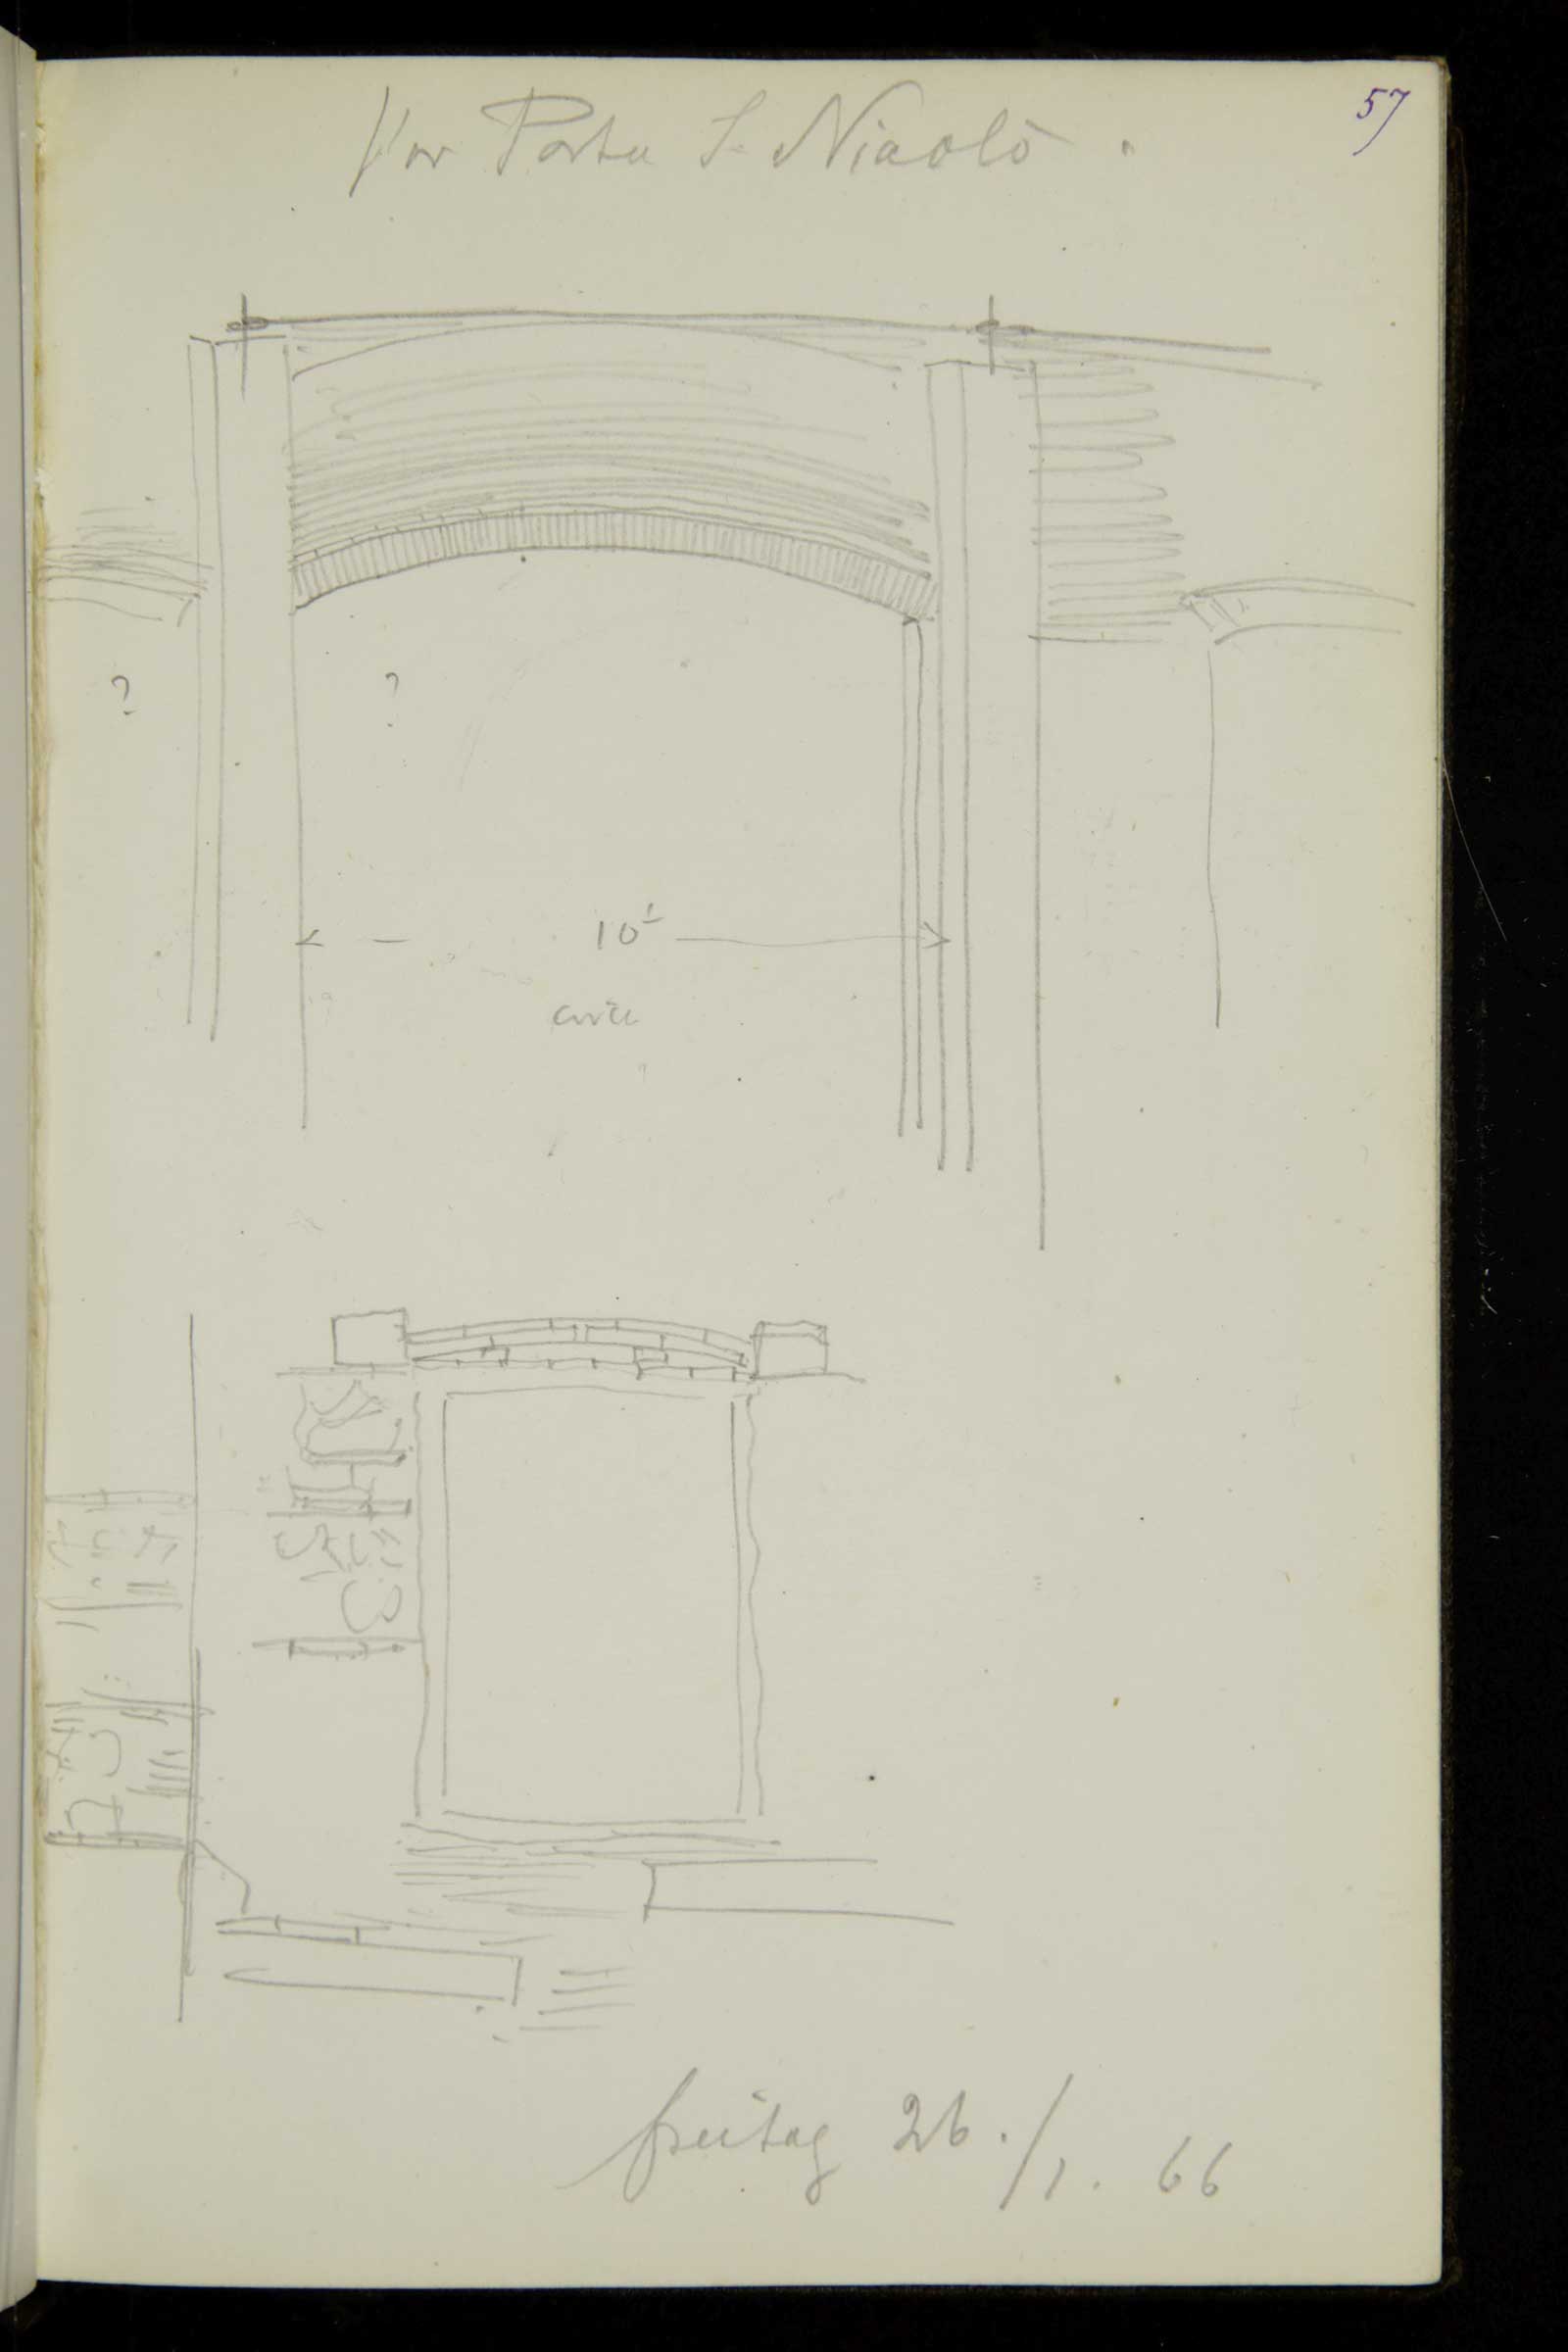 57
Vor Porta S. Nicolò.
?
?
10'
circa
freitag 26./1. 66